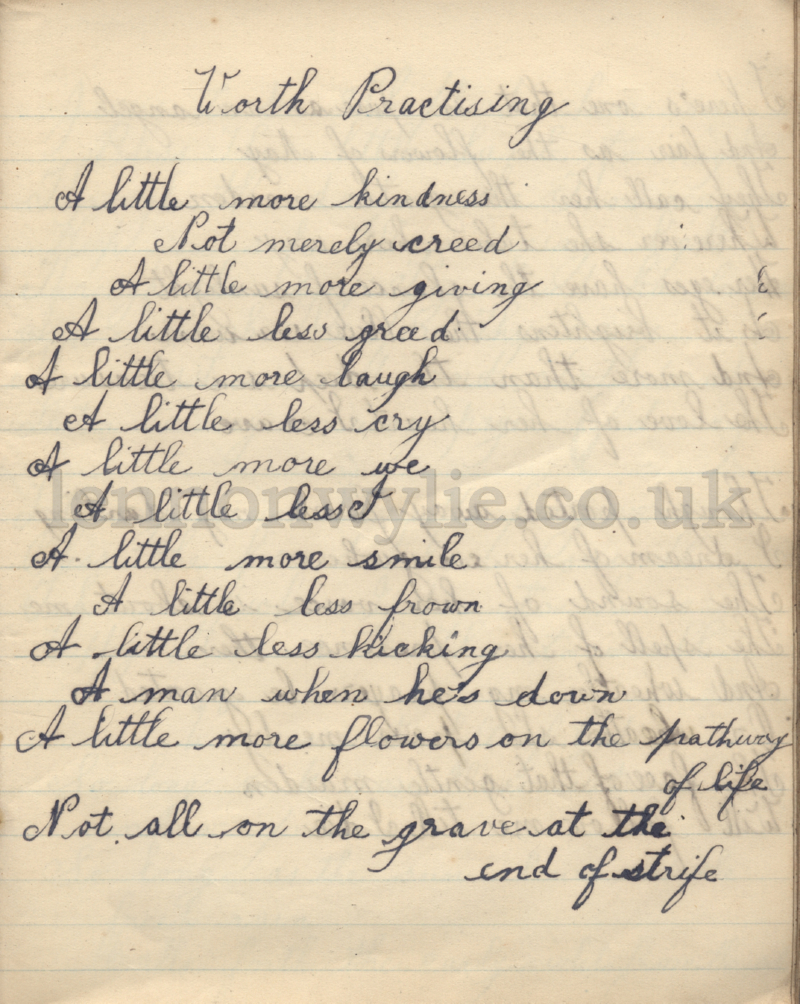 Worth Practising
A little more kindness
Not merely creed
A little more giving
A little less greed.
A little more laugh
A little less cry
A little more we
A little less I
A little more smile
A little less frown
A little less kicking
A man when he's down
A little more flowers on the pathway
of life
Not all on the grave at the
end of strife
lennonwylie.co.uk